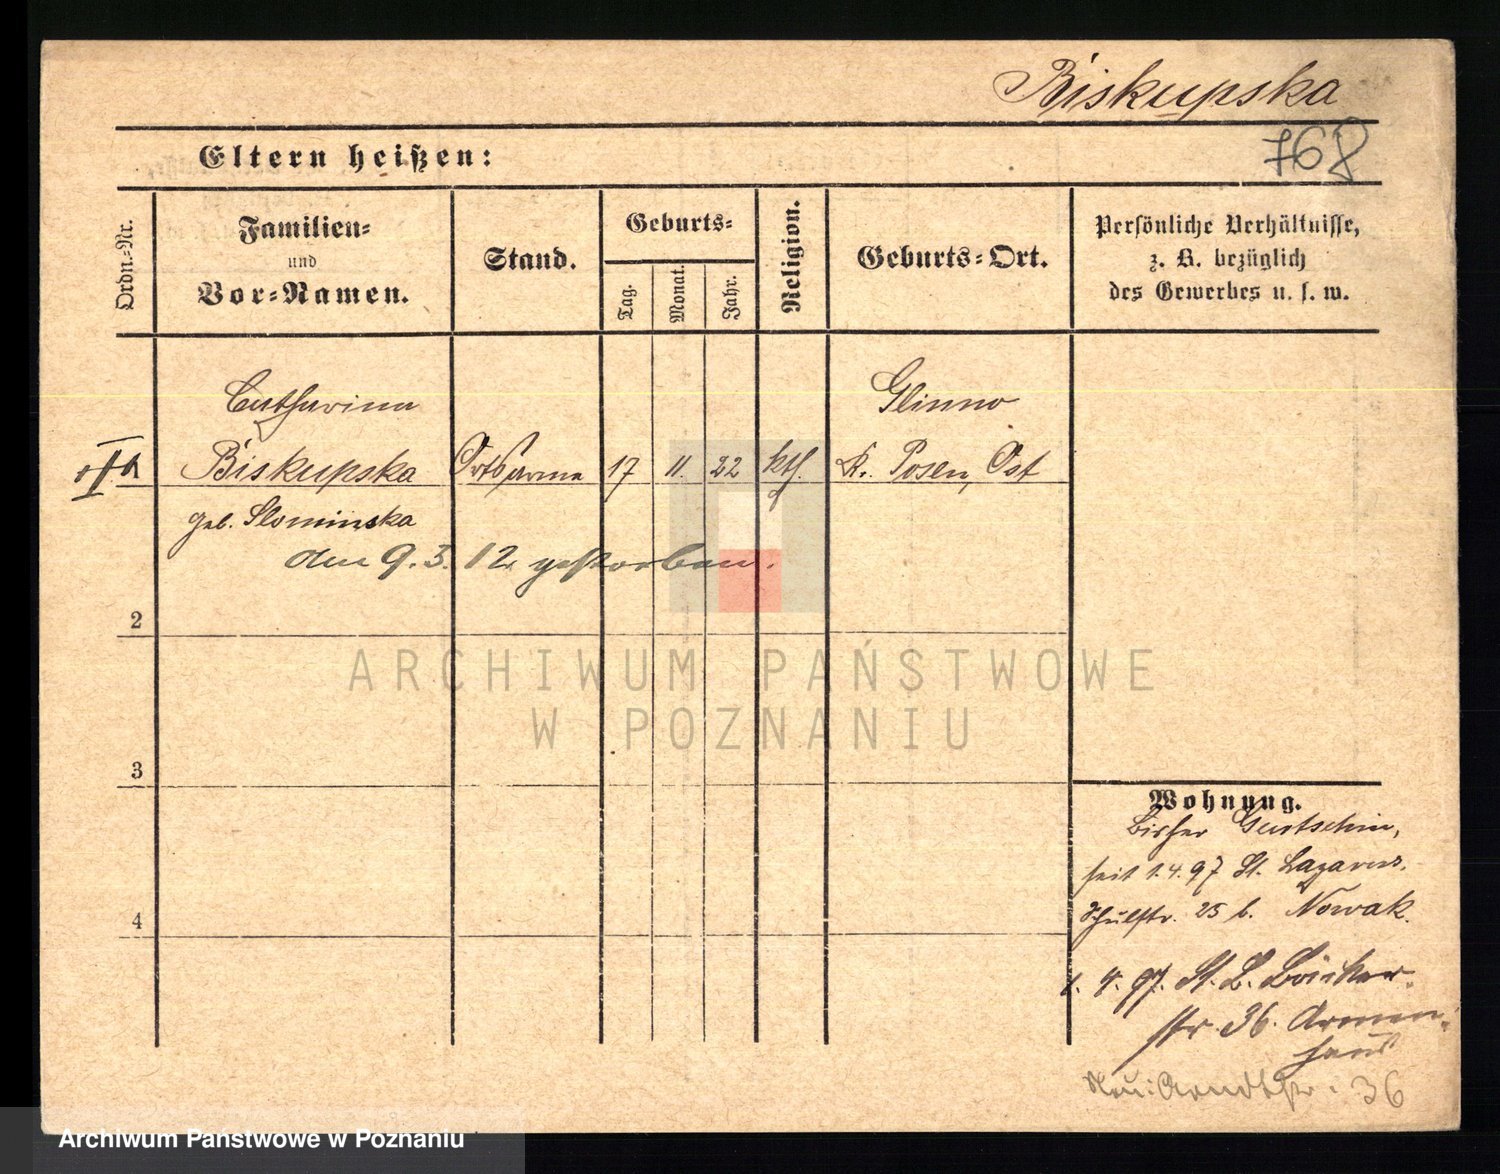 Biskupska
768
Eltern heißen:
Ordn.-Nr.
Familien-
und
Vor-Namen.
Stand.
Geburts-
Tag.
Monat.
Jahr.
Religion.
Geburts-Ort.
Persönliche Verhältnisse,
z. B. bezüglich
des Gewerbes u. s. w.
Catharina
Biskupska
geb. Slominska
Ortsarme
17
11.
22
kth.
Glinno
Kr. Posen, Ost
den 9. 3. 12 gestorben.
2
3
4
Wohnung.
Bisher Gurtschin,
seit 1.4.97 St. Lazarus.
Schulstr. 25 b. Nowak.
1. 4. 97. St. L.
str. 36. Armen-
haus
Neu: Arndtstr. 36
ARCHIWUM PAŃSTWOWE
W POZNANIU
Archiwum Państwowe w Poznaniu